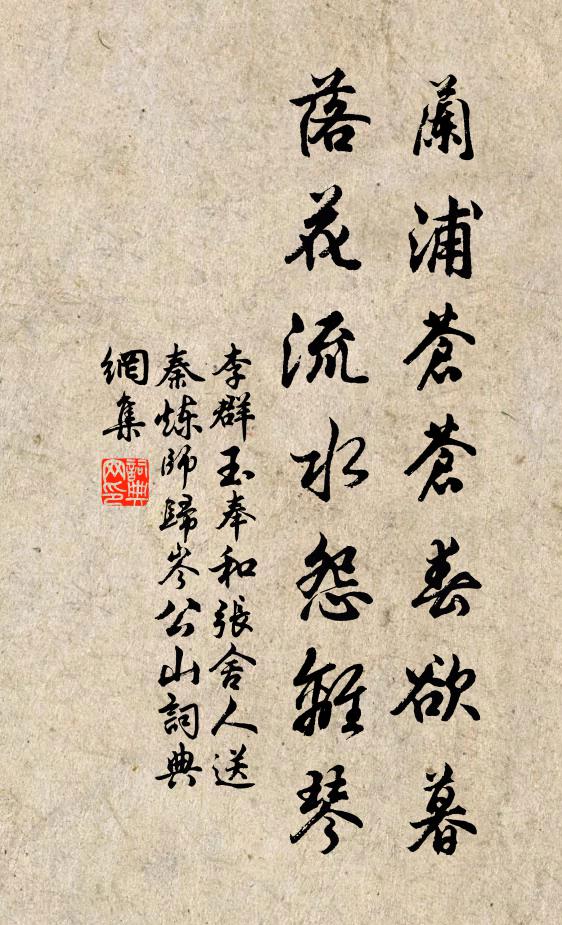 蘭浦蒼蒼春欲暮
落花流水怨離琴
李群玉奉和張舍人送
秦煉師歸岑公山詞典
網集
詞典網印